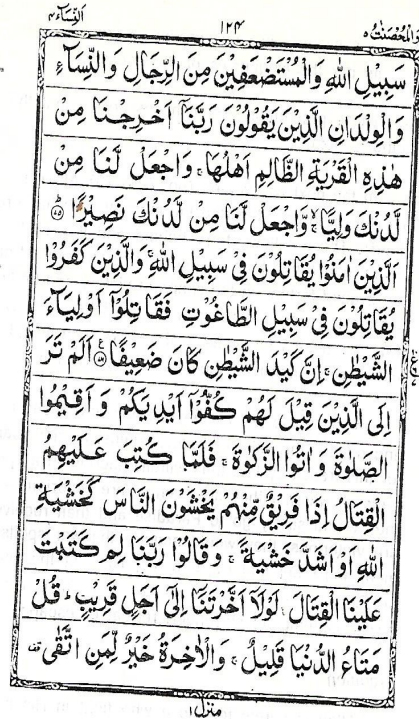 النِّسَآء ٤
١٢٤
وَالْمُحْصَنٰتُ ٥
سَبِيْلِ اللّٰهِ وَالْمُسْتَضْعَفِيْنَ مِنَ الرِّجَالِ وَالنِّسَآءِ
وَالْوِلْدَانِ الَّذِيْنَ يَقُوْلُوْنَ رَبَّنَآ اَخْرِجْنَا مِنْ
هٰذِهِ الْقَرْيَةِ الظَّالِمِ اَهْلُهَا ۚ وَاجْعَلْ لَّنَا مِنْ
لَّدُنْكَ وَلِيًّا ۙ وَّاجْعَلْ لَّنَا مِنْ لَّدُنْكَ نَصِيْرًا ؕ ﴿٧٥﴾
اَلَّذِيْنَ اٰمَنُوْا يُقَاتِلُوْنَ فِيْ سَبِيْلِ اللّٰهِ ۚ وَالَّذِيْنَ كَفَرُوْا
يُقَاتِلُوْنَ فِيْ سَبِيْلِ الطَّاغُوْتِ فَقَاتِلُوْٓا اَوْلِيَآءَ
الشَّيْطٰنِ ۚ اِنَّ كَيْدَ الشَّيْطٰنِ كَانَ ضَعِيْفًا ﴿٧٦﴾ اَلَمْ تَرَ
اِلَى الَّذِيْنَ قِيْلَ لَهُمْ كُفُّوْٓا اَيْدِيَكُمْ وَاَقِيْمُوا
الصَّلٰوةَ وَاٰتُوا الزَّكٰوةَ ۚ فَلَمَّا كُتِبَ عَلَيْهِمُ
الْقِتَالُ اِذَا فَرِيْقٌ مِّنْهُمْ يَخْشَوْنَ النَّاسَ كَخَشْيَةِ
اللّٰهِ اَوْ اَشَدَّ خَشْيَةً ۚ وَقَالُوْا رَبَّنَا لِمَ كَتَبْتَ
عَلَيْنَا الْقِتَالَ ۚ لَوْلَآ اَخَّرْتَنَآ اِلٰٓى اَجَلٍ قَرِيْبٍ ؕ قُلْ
مَتَاعُ الدُّنْيَا قَلِيْلٌ ۚ وَالْاٰخِرَةُ خَيْرٌ لِّمَنِ اتَّقٰى
منزل ١